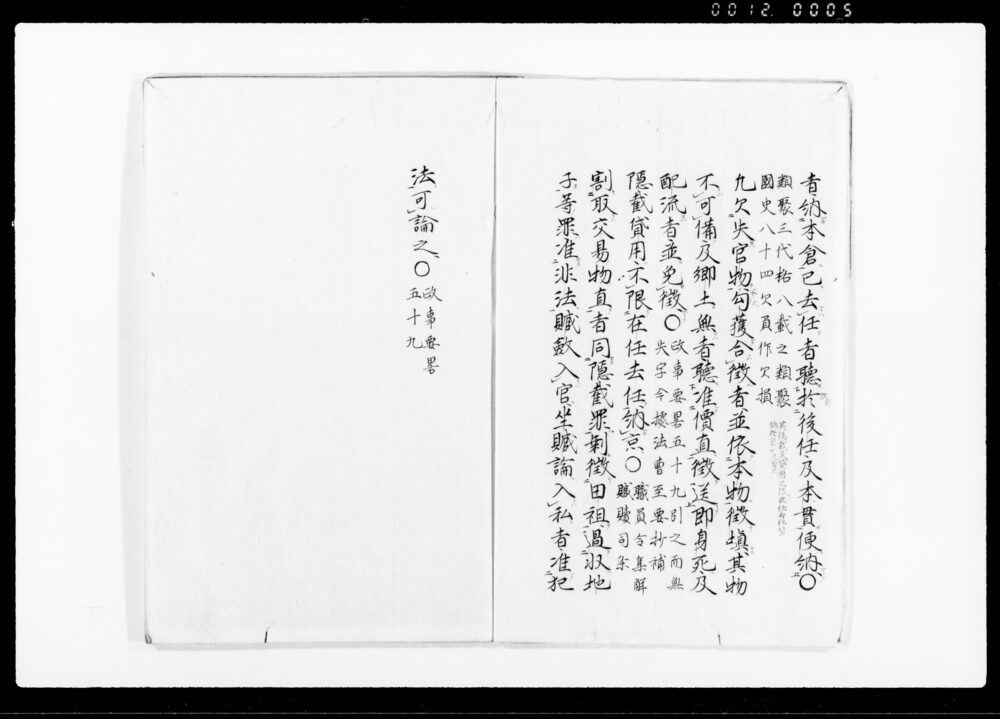 0012 0005
者納本倉已去任者聽於後任及本貫便納〇
類聚三代格八載之類聚
國史八十四欠負作欠損
凡欠失官物勾獲合徵者並依本物徵塡其物
不可備及郷土無者聽准價直徵送即身死及
配流者並免徵〇
政事要畧五十九引之而無
失字今據法曹至要抄補
隱截貸用不限在任去任納京〇
職員令集解
贓贖司条
割取交易物直者同隱截罪剩徵田祖過収地
子等罪准非法贓斂入官坐贓論入私者准犯
法可論之〇
政事要畧
五十九